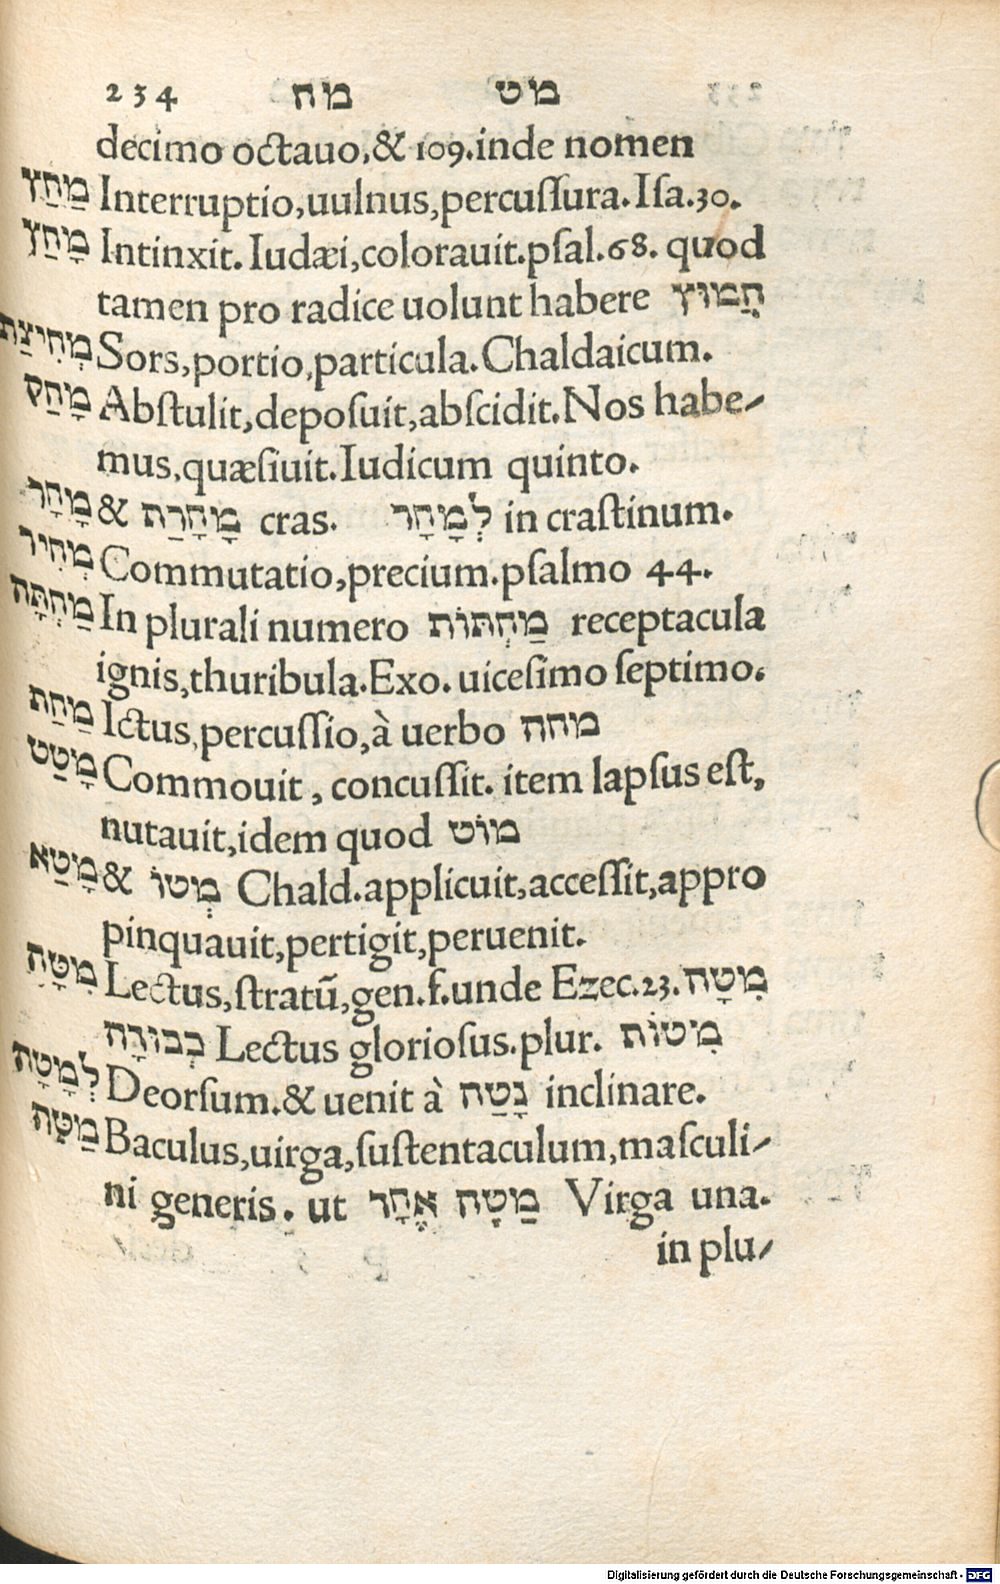 234 מח מט
decimo octauo,& 109.inde nomen
מַחַץ Interruptio,uulnus,percuſſura.Iſa.30.
מָחַץ Intinxit. Iudæi,colorauit.pſal.68. quod
tamen pro radice uolunt habere חֲמוּץ
מְחִיצַת Sors,portio,particula.Chaldaicum.
מָחַק Abſtulit,depoſuit,abſcidit.Nos habe⸗
mus,quæſiuit.Iudicum quinto.
מָחָר & מָחֳרַת cras. לְמָחָר in craſtinum.
מְחִיר Commutatio,precium.pſalmo 44.
מַחְתָּה In plurali numero מַחְתּוֹת receptacula
ignis,thuribula.Exo. uiceſimo ſeptimo.
מַחַת Ictus,percuſſio,à uerbo מחה
מָטַט Commouit, concuſſit. item lapſus eſt,
nutauit,idem quod מוֹט
מָטַא & מְטוֹ Chald.applicuit,acceſſit,appro
pinquauit,pertigit,peruenit.
מִטָּה Lectus,ſtratū,gen.f.unde Ezec.23.מִטָּה
כְבוּדָּה Lectus glorioſus.plur. מִטוֹת
לְמָטָּה Deorſum.& uenit à נָטַה inclinare.
מַטֶּה Baculus,uirga,ſuſtentaculum,maſculi⸗
ni generis. ut מַטֶּה אֶחָד Virga una.
in plu⸗
Digitalisierung gefördert durch die Deutsche Forschungsgemeinschaft - DFG